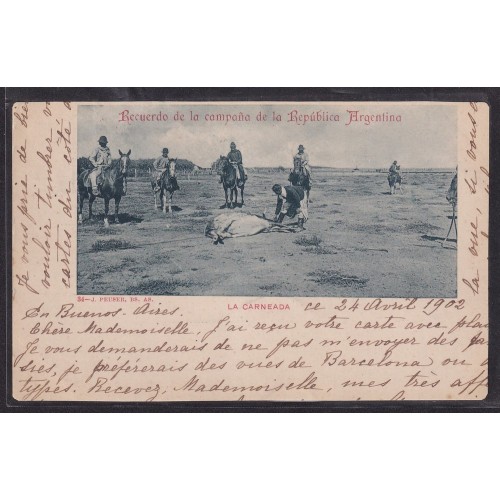 Recuerdo de la campaña de la República Argentina
34-J. PEUSER, BS. AP.
LA CARNEADA
ce 24 Avril 1902
En Buenos-Aires.
Chère Mademoiselle, J'ai reçu votre carte avec plai
Je vous demanderais de ne pas m'envoyer des
sies, je préférerais des vues de Barcelona ou d
types. Recevez, Mademoiselle, mes très aff
Je vous prie de bie
vouloir timbrer v
cartes du côté
la vue, si vous